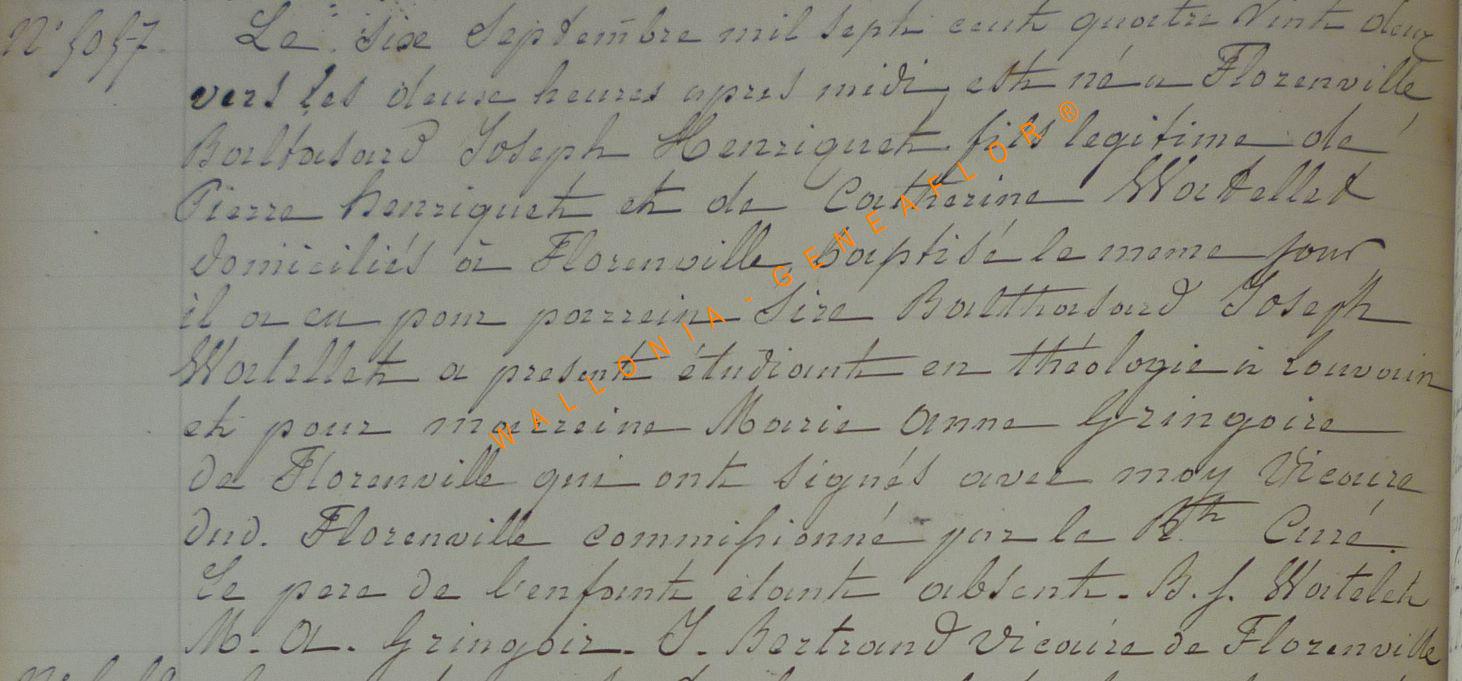 N° 5057. Le six Septembre mil sept cent quatre vint deux
vers les deuxe heures apres midi, est né a Florenville
Baltasard Joseph Henriquet, fils legitime de
Pierre henriquet et de Catherine Watellet
domiciliés à Florenville, baptisé le meme jour
il a eu pour parrein Sire Balthasard Joseph
Watellet a present étudiant en théologie à Louvain
et pour marreine Marie Anne Gringoire
de Florenville qui ont signés avec moy Vicaire
dud. Florenville commissionné par le Rth Curé.
Le pere de l'enfant etant absent. B. J. Watelet
M. A. Gringoir. J. Bertrand Vicaire de Florenville
WALLONIA - GENEAFLOR ®